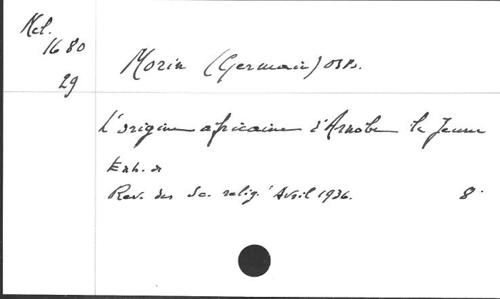 Mel.
1680
29
Morin (Germain) OSB.
L'origine africaine d'Arnobe le Jeune
Extr. de
Rev. des Sc. relig. Avril 1936.
8°